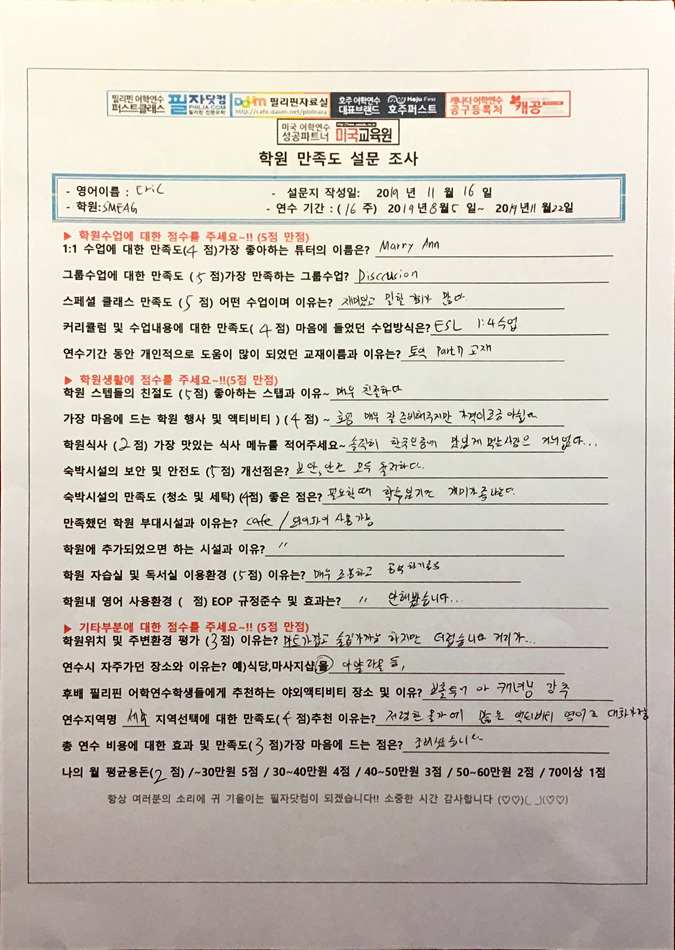 필리핀 어학연수 퍼스트클래스 필자닷컴 PHILJA.COM 필리핀 전문유학 Daum 필리핀자료실 http://cafe.daum.net/philnara 호주 어학연수 대표브랜드 Hoju First 호주퍼스트 캐나다 어학연수 공구등록처 캐공
미국 어학연수 성공파트너 미국교육원
학원 만족도 설문 조사
- 영어이름 : Eric - 설문지 작성일: 2019 년 11 월 16 일
- 학원:SMEAG - 연수 기간 : (16 주) 2019년 8월 5 일~ 2019년 11월 22일
▶ 학원수업에 대한 점수를 주세요~!! (5점 만점)
1:1 수업에 대한 만족도(4 점)가장 좋아하는 튜터의 이름은? Marry Ann
그룹수업에 대한 만족도 (5 점)가장 만족하는 그룹수업? Disccusion
스페셜 클래스 만족도 (5 점) 어떤 수업이며 이유는? 재미있고 말할 기회가 많다.
커리큘럼 및 수업내용에 대한 만족도( 4 점) 마음에 들었던 수업방식은? ESL 1:4수업
연수기간 동안 개인적으로 도움이 많이 되었던 교재이름과 이유는? 토익 Part7 교재
▶ 학원생활에 점수를 주세요~!!(5점 만점)
학원 스텝들의 친절도 (5점) 좋아하는 스탭과 이유~ 매우 친절하다
가장 마음에 드는 학원 행사 및 액티비티 ) (4 점) ~ 호핑 매우 잘 준비해주지만 가격이 조금 아쉽다
학원식사 (2 점) 가장 맛있는 식사 메뉴를 적어주세요~ 솔직히 한국인중에 맛있게 먹는사람은 거의없다...
숙박시설의 보안 및 안전도 (5 점) 개선점은? 보안, 안전 모두 철저하다.
숙박시설의 만족도 (청소 및 세탁) (4점) 좋은 점은? 필요할때 할수있지만 개미가 죽나온다.
만족했던 학원 부대시설과 이유는? cafe / 와이파이 사용가능
학원에 추가되었으면 하는 시설과 이유? 〃
학원 자습실 및 독서실 이용환경 (5점) 이유는? 매우 조용하고 공부하기좋음
학원내 영어 사용환경 ( 점) EOP 규정준수 및 효과는? 〃 안해봤습니다...
▶ 기타부분에 대한 점수를 주세요~!! (5점 만점)
학원위치 및 주변환경 평가 (3점) 이유는? 마트가깝고 술집가까움 하지만 더럽습니다 거리가...
연수시 자주가던 장소와 이유는? 예)식당,마사지샵,몰 아얄라몰 등,
후배 필리핀 어학연수학생들에게 추천하는 야외액티비티 장소 및 이유? 보홀투어 아 캐녀닝 강추
연수지역명 세부 지역선택에 대한 만족도(4 점)추천 이유는? 저렴한 물가에 많은 액티비티 영어로 대화가능
총 연수 비용에 대한 효과 및 만족도(3 점)가장 마음에 드는 점은?
나의 월 평균용돈(2 점) /~30만원 5점 / 30~40만원 4점 / 40~50만원 3점 / 50~60만원 2점 / 70이상 1점
항상 여러분의 소리에 귀 기울이는 필자닷컴이 되겠습니다!! 소중한 시간 감사합니다 (♡♡)(_ _)(♡♡)